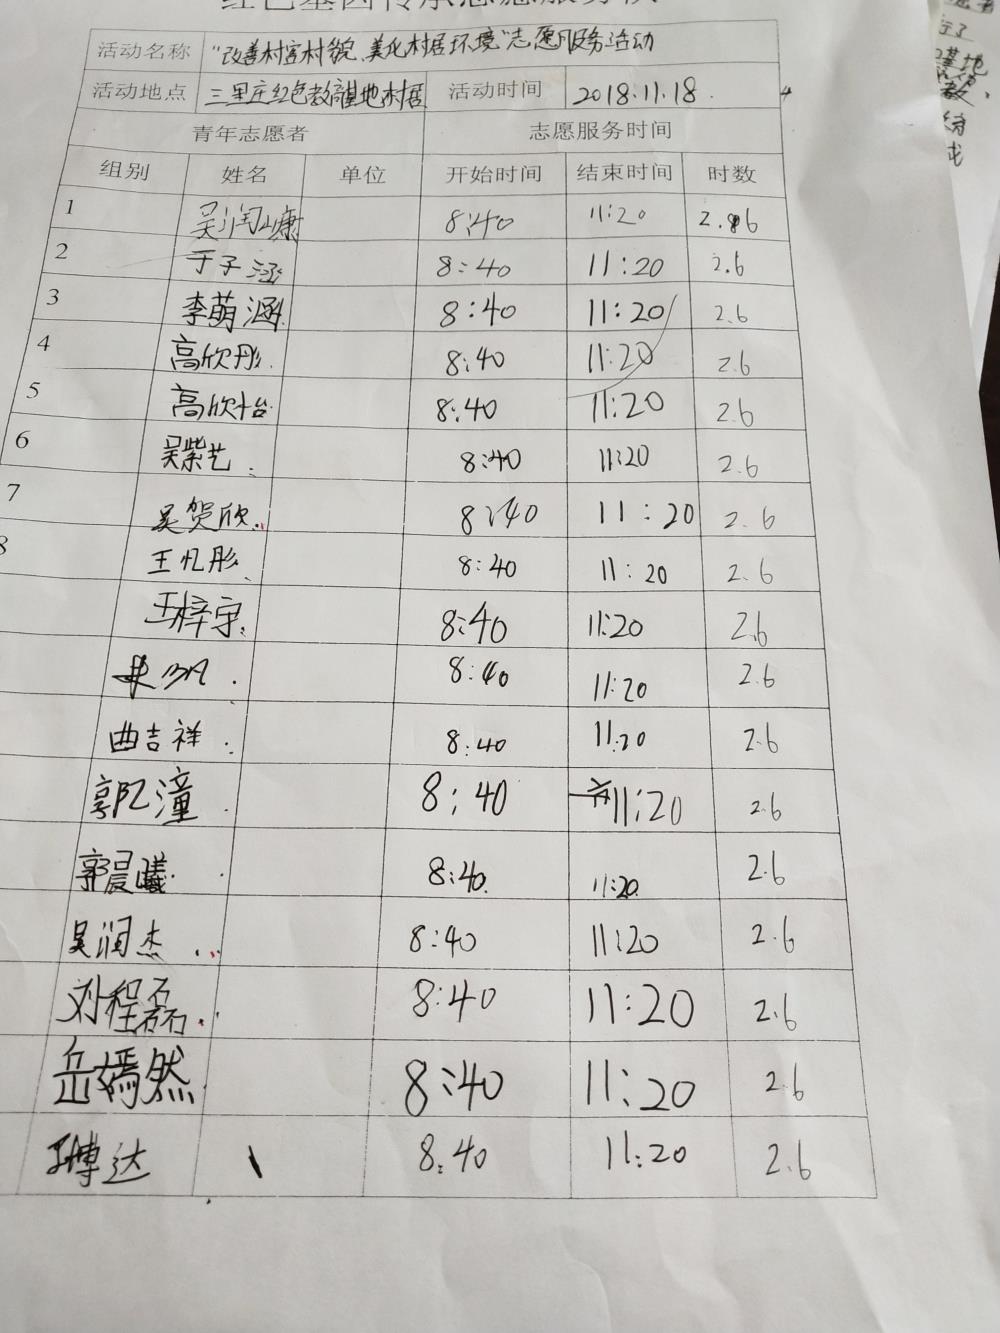 红色基因传承志愿服务队
活动名称 "改善村容村貌、美化村居环境"志愿服务活动
活动地点 三里庄红色教育基地村居 活动时间 2018.11.18.
青年志愿者 志愿服务时间
组别 姓名 单位 开始时间 结束时间 时数
1 吴润康 8:40 11:20 2.6
2 于子涵 8:40 11:20 2.6
3 李萌涵 8:40 11:20 2.6
4 高欣彤. 8:40 11:20 2.6
5 高欣怡 8:40 11:20 2.6
6 吴紫艺. 8:40 11:20 2.6
7 吴贺欣.. 8:40 11:20 2.6
8 王忆彤. 8:40 11:20 2.6
王梓宇. 8:40 11:20 2.6
8:40 11:20 2.6
曲吉祥. 8:40 11:20 2.6
郭亿潼. 8:40 11:20 2.6
郭晨曦. 8:40. 11:20. 2.6
吴润杰... 8:40 11:20 2.6
刘程磊.. 8:40 11:20 2.6
岳嫣然. 8:40 11:20 2.6
博达 8:40 11:20 2.6